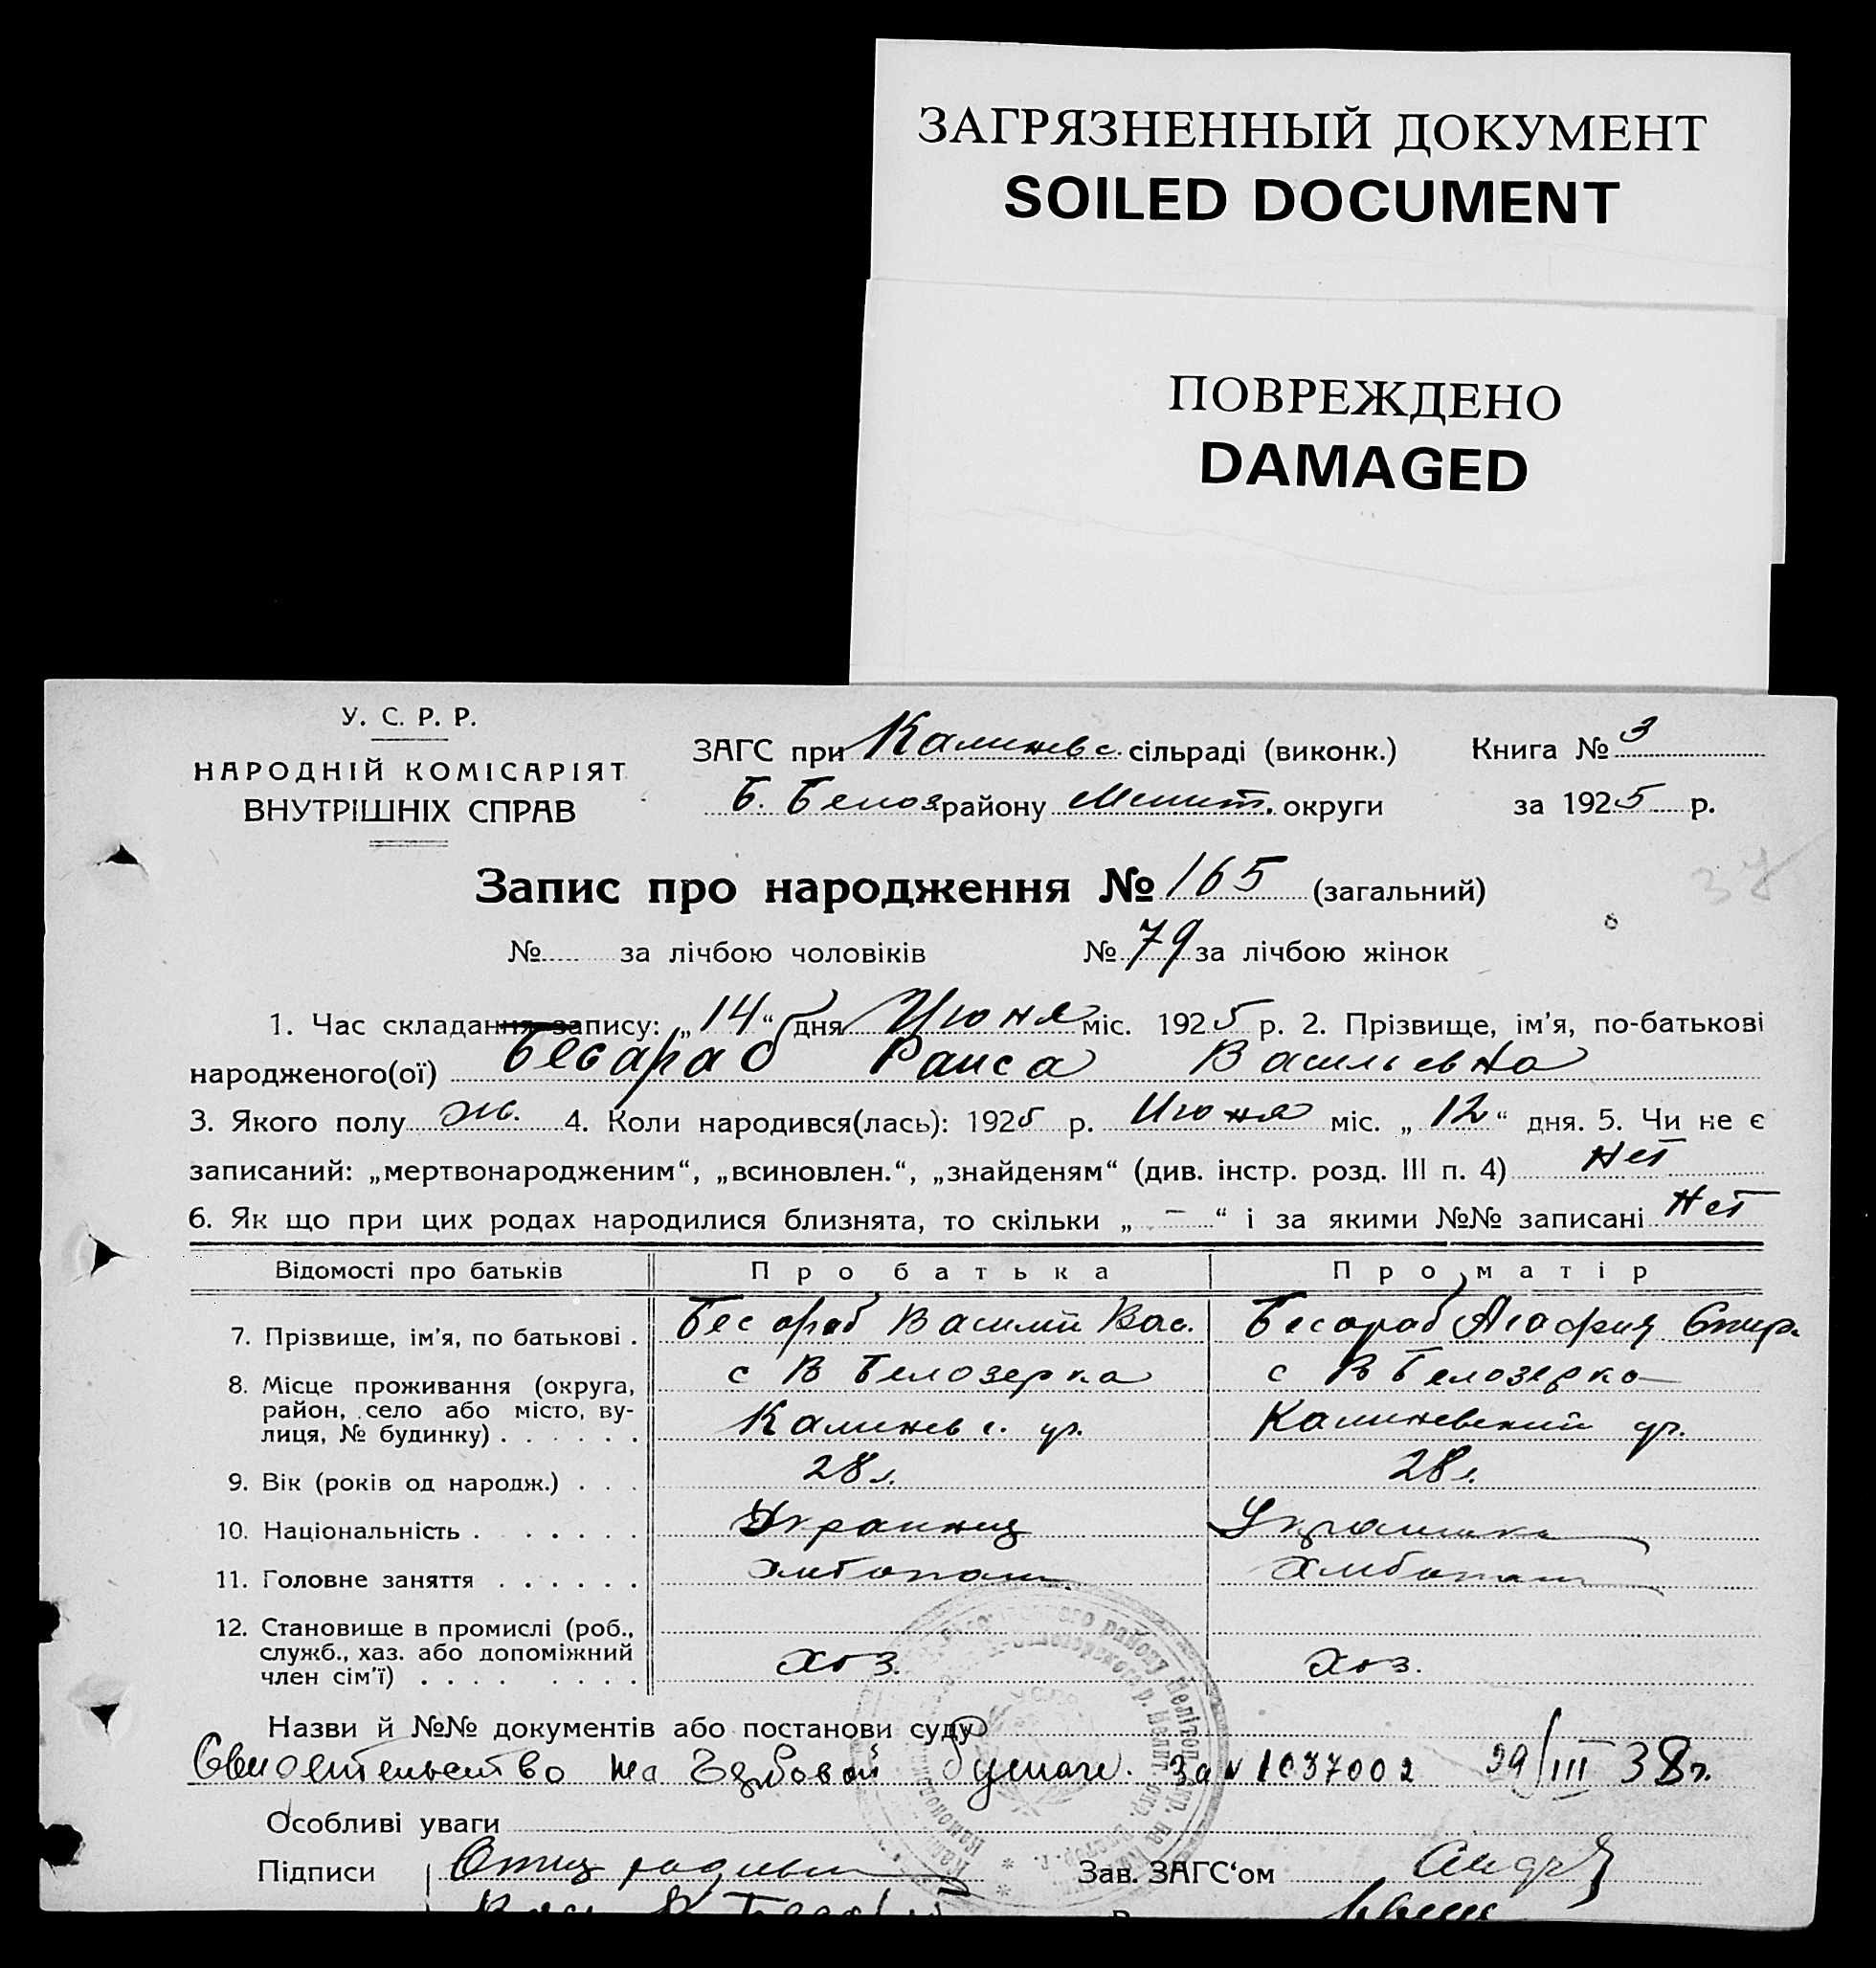 ЗАГРЯЗНЕННЫЙ ДОКУМЕНТ
SOILED DOCUMENT
ПОВРЕЖДЕНО
DAMAGED
У. С. Р. Р.
НАРОДНІЙ КОМІСАРІЯТ
ВНУТРІШНІХ СПРАВ
ЗАГС при Калиневс. сільраді (виконк.)
Б. Белоз району Мелит. округи
Книга № 3
за 1925 р.
Запис про народження № 165 (загальний)
№ за лічбою чоловіків № 79 за лічбою жінок
1. Час складання запису: „14“ дня Июня міс. 1925 р. 2. Прізвище, ім’я, по-батькові
народженого(ої) Бесараб Раиса Васильевна
3. Якого полу ж. 4. Коли народився(лась): 1925 р. Июня міс. „12“ дня. 5. Чи не є
записаний: „мертвонародженим“, „всиновлен.“, „знайденям“ (див. інстр. розд. III п. 4) Нет
6. Як що при цих родах народилися близнята, то скільки „ – “ і за якими №№ записані Нет
Відомості про батьків Про батька Про матір
7. Прізвище, ім’я, по батькові . Бесараб Василий Вас. Бесараб Агафия Спир.
8. Місце проживання (округа, с В Белозерка с В Белозерка
район, село або місто, ву-
лиця, № будинку) . . . . . . Калинев с. Калиневский
9. Вік (років од народж.) . . . 28 л. 28 л.
10. Національність . . . . . . . Украинец Украинка
11. Головне заняття . . . . . . Хлебопаш. Хлебопаш
12. Становище в промислі (роб.,
служб., хаз. або допоміжний
член сім’ї) . . . . . . . . Хоз. Хоз.
Назви й №№ документів або постанови суду
Свидетельство на гербовой бумаге. за № 1037002 29/III 38 г.
Особливі уваги
Підписи Отец Зав. ЗАГС‘ом